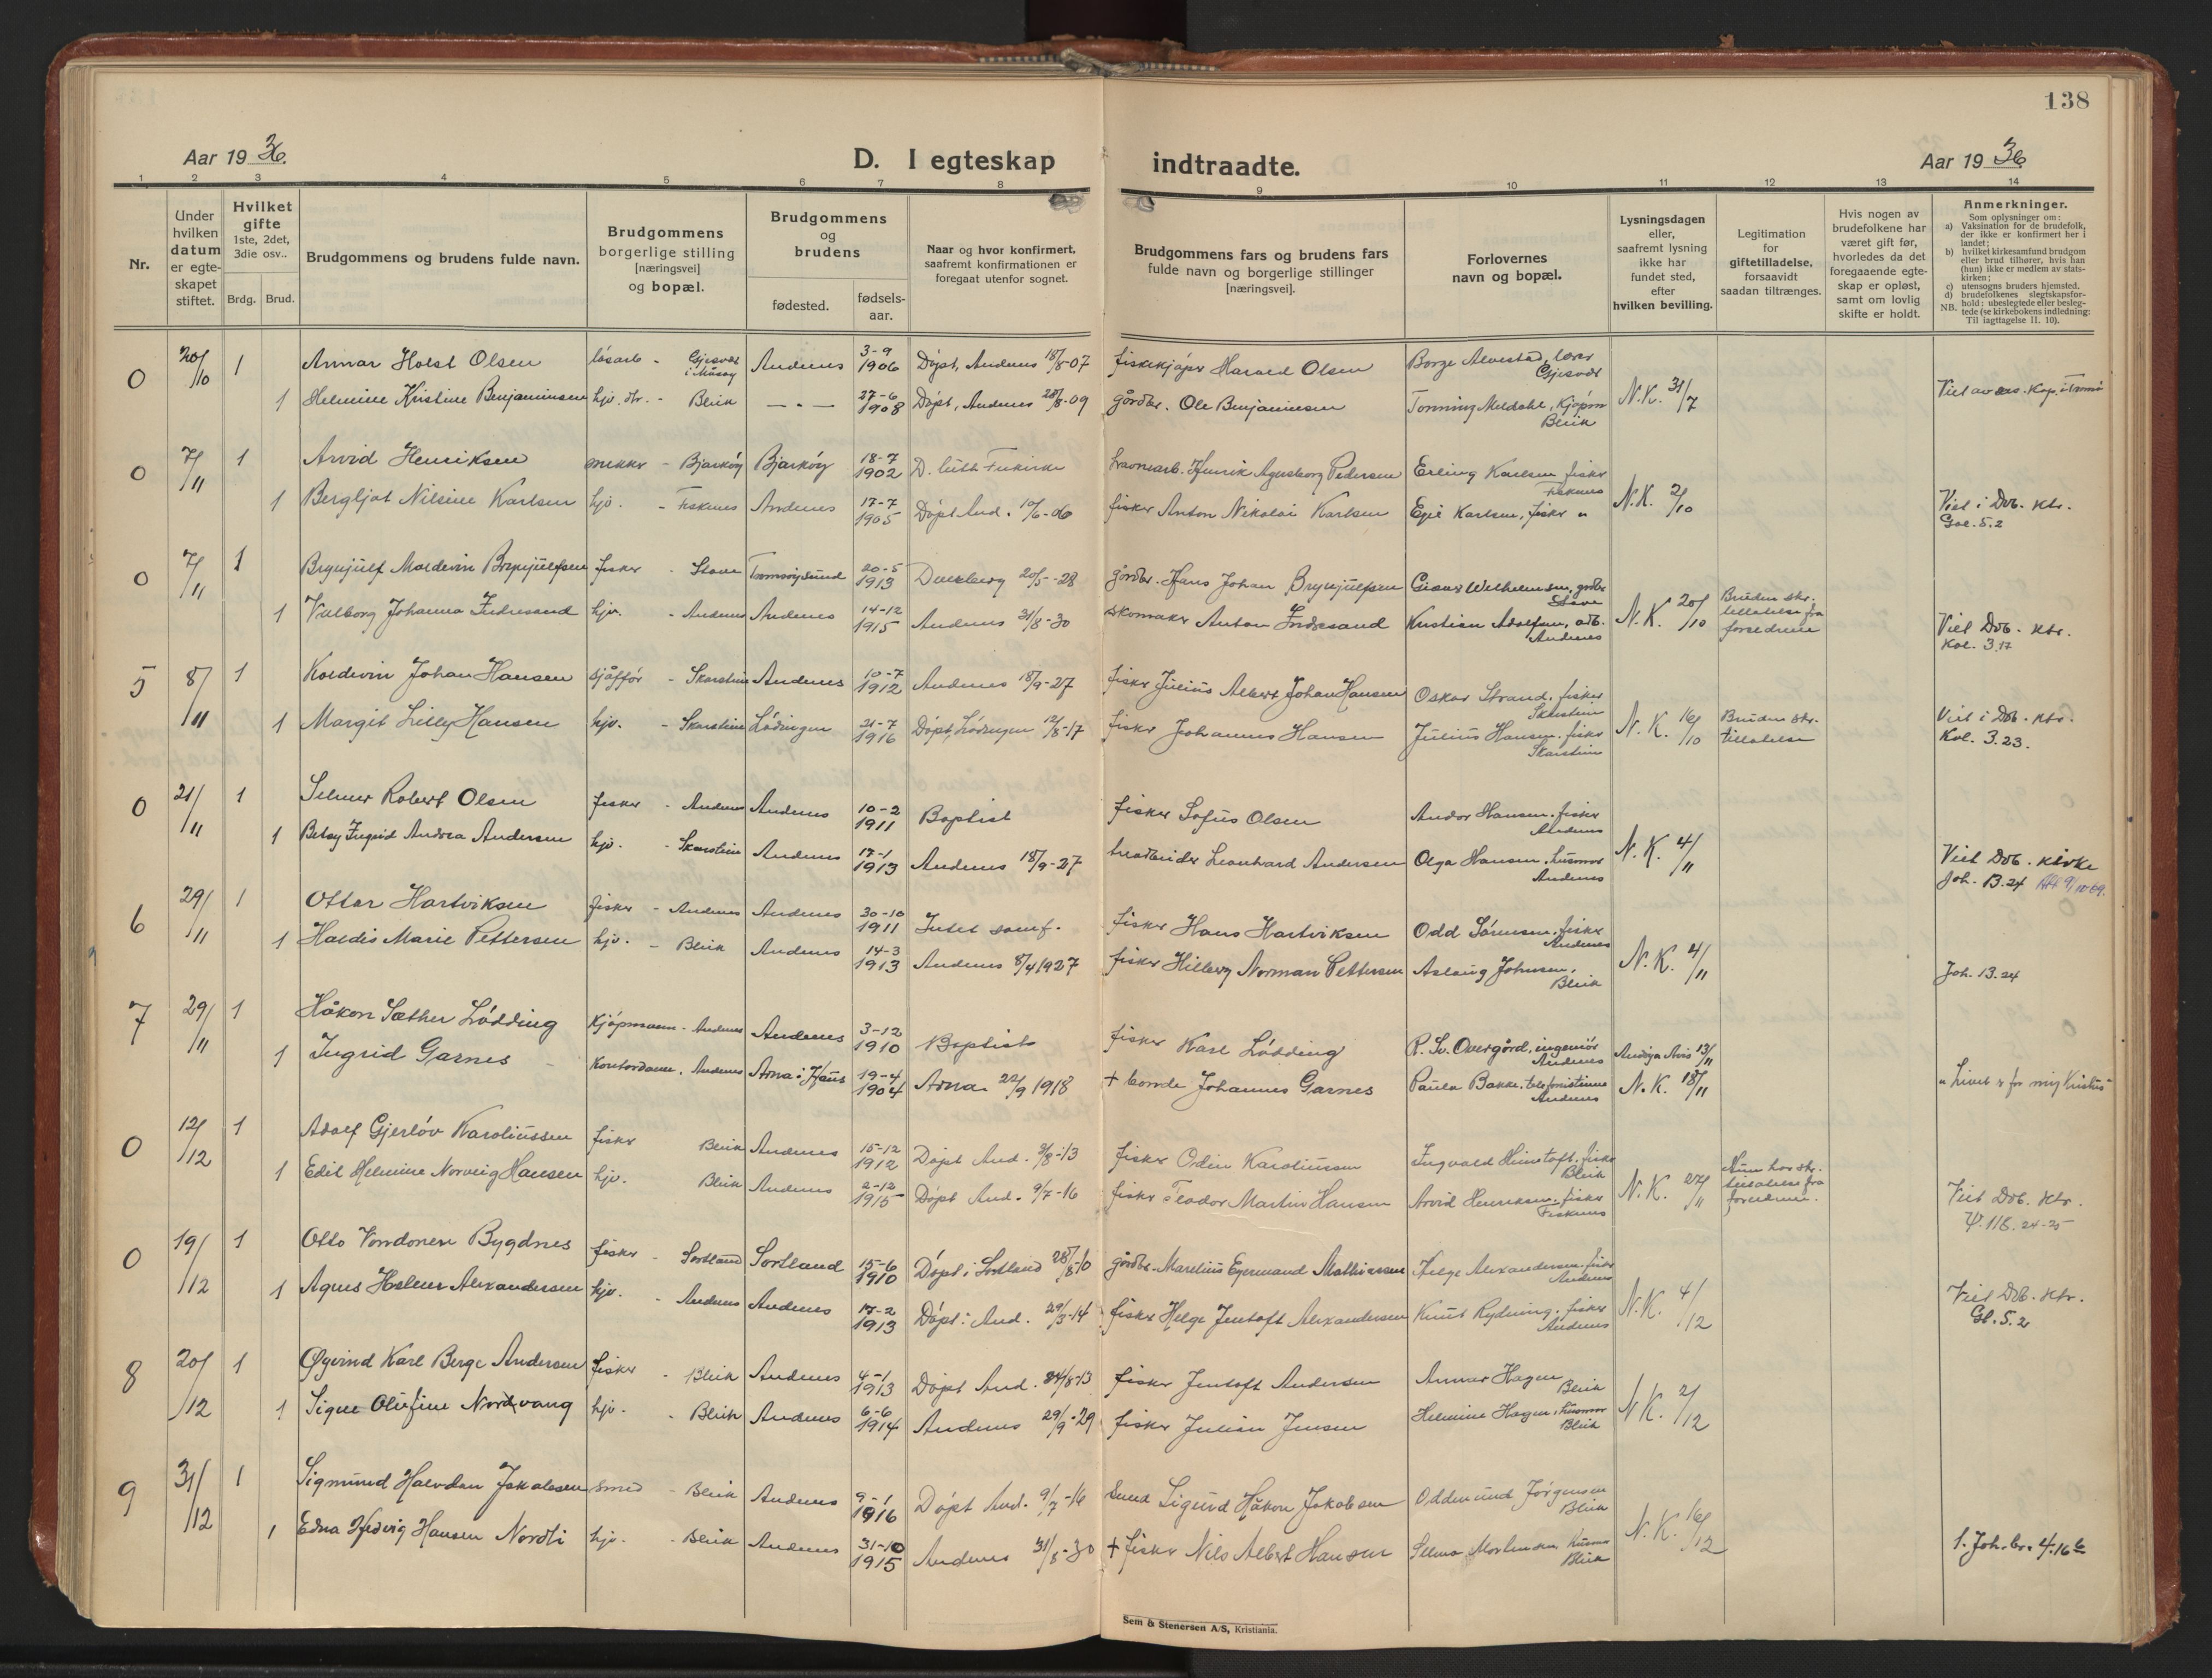 138
Aar 1936.
D. I egteskap indtraadte.
Aar 1936
1 2 3 4 5 6 7 8 9 10 11 12 13 14
Nr.
Under hvilken datum er egte-skapet stiftet.
Hvilket gifte 1ste, 2det, 3die osv..
Brdg. Brud.
Brudgommens og brudens fulde navn.
Brudgommens borgerlige stilling [næringsvei] og bopæl.
Brudgommens og brudens
fødested.
fødsels-aar.
Naar og hvor konfirmert, saafremt konfirmationen er foregaat utenfor sognet.
Brudgommens fars og brudens fars fulde navn og borgerlige stillinger [næringsvei].
Forlovernes navn og bopæl.
Lysningsdagen eller, saafremt lysning ikke har fundet sted, efter hvilken bevilling.
Legitimation for giftetilladelse, forsaavidt saadan tiltrænges.
Hvis nogen av brudefolkene har været gift før, hvorledes da det foregaaende egte-skap er opløst, samt om lovlig skifte er holdt.
Anmerkninger.
Som oplysninger om:
a) Vaksination for de brudefolk, der ikke er konfirmert her i landet;
b) hvilket kirkesamfund brudgom eller brud tilhører, hvis han (hun) ikke er medlem av stats-kirken;
c) utensogns bruders hjemsted.
d) brudefolkenes slegtskapsfor-hold: ubeslegtede eller besleg-tede (se kirkebokens indledning: Til iagttagelse II. 10).
NB.
0 20/10 1 Annar Holst Olsen løsarb - Gjesvær i Måsøy Andenes 3-9 1906 Døpt, Andenes 18/8-07 fiskekjøper Harald Olsen Borge Alvestad, lærer Gjesvær
1 Helmine Kristine Benjaminsen hjv. dtr. - Bleik - " - 27-6 1908 Døpt, Andenes 28/8-09 gårdbr. Ole Benjaminsen Tonning Meldahl, Kjøpm Bleik N.K. 31/7
0 7/11 1 Arvid Henriksen snekker - Bjarkøy Bjarkøy 18-7 1902 D. luth Frikirke Henrik Pedersen Erling Karlsen fisker Fiskenes
1 Bergljot Nilsine Karlsen hjv. - Fiskenes Andenes 17-7 1905 Døpt And. 10/6-06 fisker Anton Nikolai Karlsen Egil Karlsen, fisker " N.K. 2/10 Viet i Dvb. Ktr. Gal. 5.2
0 7/11 1 Brynjulf Moldevin Brynjulfsen fisker - Stave Tromsøysund 20-5 1913 Dverberg 20/5-28 gårdbr. Hans Johan Brynjulfsen Einar Wilhelmsen, gårdbr Stave
1 Valborg Johanna Indresand hjv. - Andenes Andenes 14-12 1915 Andenes 31/8-30 skomaker Anton Indresand Kristian Adolfsen, arb. Andenes N.K. 20/10 Bruden skr. tillatelse fra foreldrene Viet Dvb. Ktr. Kol. 3.17
5 8/11 1 Koldevin Johan Hansen sjåfør - Skarstein Andenes 10-7 1912 Andenes 18/9-27 fisker Julius Albert Johan Hansen Oskar Strand, fisker Skarstein
1 Margit Lilly Hansen hjv. - Skarstein Lødingen 21-7 1916 Døpt, Lødingen 12/8-17 fisker Johannes Hansen Julius Hansen, fisker Skarstein N.K. 16/10 Bruden skr. tillatelse Viet i Dvb. Ktr. Kol. 3.23.
0 21/11 1 Selmer Robert Olsen fisker - Andenes Andenes 10-2 1911 Baptist fisker Sofus Olsen Andor Hansen, fisker Andenes
1 Betsy Ingrid Andrea Andersen hjv. - Skarstein Andenes 17-1 1913 Andenes 18/9-27 Leonhard Andersen Olga Hansen, husmor Andenes N.K. 4/11 Viet Dvb. kirke Joh. 13.24
6 29/11 1 Ottar Hartviksen fisker - Andenes Andenes 30-10 1911 Intet samf. fisker Hans Hartviksen Odd Sørensen, fisker Andenes
1 Haldis Marie Pettersen hjv. - Bleik Andenes 14-3 1913 Andenes 8/4 1927 fisker Hilberg Norman Pettersen Aslaug Johnsen, Bleik N.K. 4/11 Joh. 13.24
7 29/11 1 Håkon Sæther Lødding Kjøpmann - Andenes Andenes 3-12 1910 Baptist fisker Karl Lødding R. Sv. Overgård, ingeniør Andenes Andøya Avis 13/11
1 Ingrid Garnes - Kontordame, Andenes Arna i Haus 19-4 1904 Arna 22/9 1918 + bonde Johannes Garnes Paula Bakke, telefonistinne Andenes N.K. 18/11 "Livet er for mig Kristus"
0 12/12 1 Adolf Gjerløv Karoliussen fisker Bleik Andenes 15-12 1912 Døpt And. 3/8-13 fisker Odin Karoliussen Ingvald Himstoft, fisker Bleik
1 Edil Helmine Norveig Hansen hjv. Bleik Andenes 2-12 1915 Døpt And. 9/7-16 fisker Teodor Martin Hansen Arvid Henriksen, fisker Fiskenes N.K. 27/11 Hun har skr. tillatelse fra foreldrene. Viet Dvb. Ktr. Ψ. 118. 24-25
0 19/12 1 Otto Vondonen Bygdnes fisker - Sortland Sortland 15-6 1910 Døpt i Sortland 28/8-10 gårdbr. Marelius Egermand Mathiassen Helge Alexandersen, fisker Andenes
1 Agnes Helene Alexandersen hjv. - Andenes Andenes 17-2 1913 Døpt i And. 29/3-14 fisker Helge Jentoft Alexandersen Knut Rydning, fisker Andenes N.K. 4/12 Viet Dvb. Ktr. Gl. 5.2
8 20/12 1 Øyvind Karl Berge Andersen fisker - Bleik Andenes 4-1 1913 Døpt And. 24/8-13 fisker Jentoft Andersen Annar Hagen Bleik
1 Signe Olufine Nordvang hjv. - Bleik Andenes 6-6 1914 Andenes 29/9-29 fisker Julian Jensen Helmine Hagen, husmor Bleik N.K. 2/12
9 31/12 1 Sigmund Halvdan Jakobsen smed - Bleik Andenes 9-1 1916 Døpt And. 9/7-16 smed Sigurd Håkon Jakobsen Oddmund Jørgensen Bleik
1 Edna Hedvig Hansen Nordli hjv. - Bleik Andenes 31-10 1915 Andenes 31/8-30 + fisker Nils Albert Hansen Selma Mortensen husmor Bleik N.K. 16/12 1. Joh. br. 4.16 b
Sem & Stenersen A/S, Kristiania.